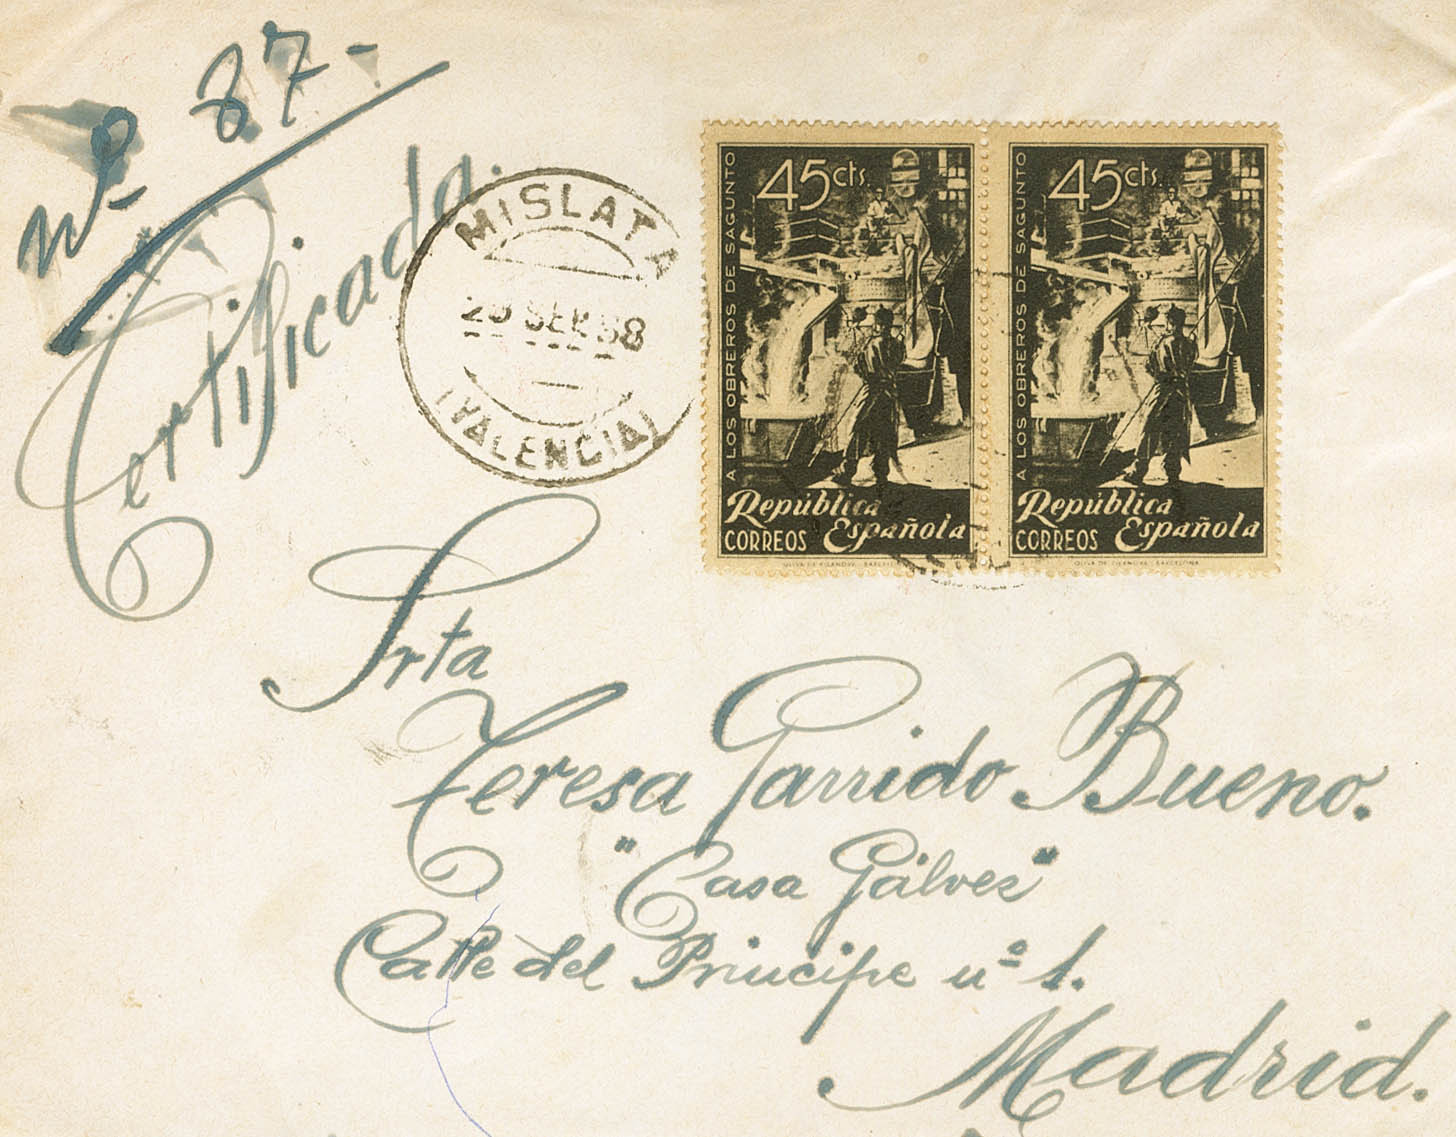 Nº 87-
Certificada.
MISLATA
SEP 38
(VALENCIA)
45cts.
A LOS OBREROS DE SAGUNTO
República
Española
CORREOS
OLIVA DE VILANOVA - BARCELONA
45cts.
A LOS OBREROS DE SAGUNTO
República
Española
CORREOS
OLIVA DE VILANOVA - BARCELONA
Srta
Teresa Garrido Bueno.
"Casa Gálvez"
Calle del Principe nº 1.
Madrid.